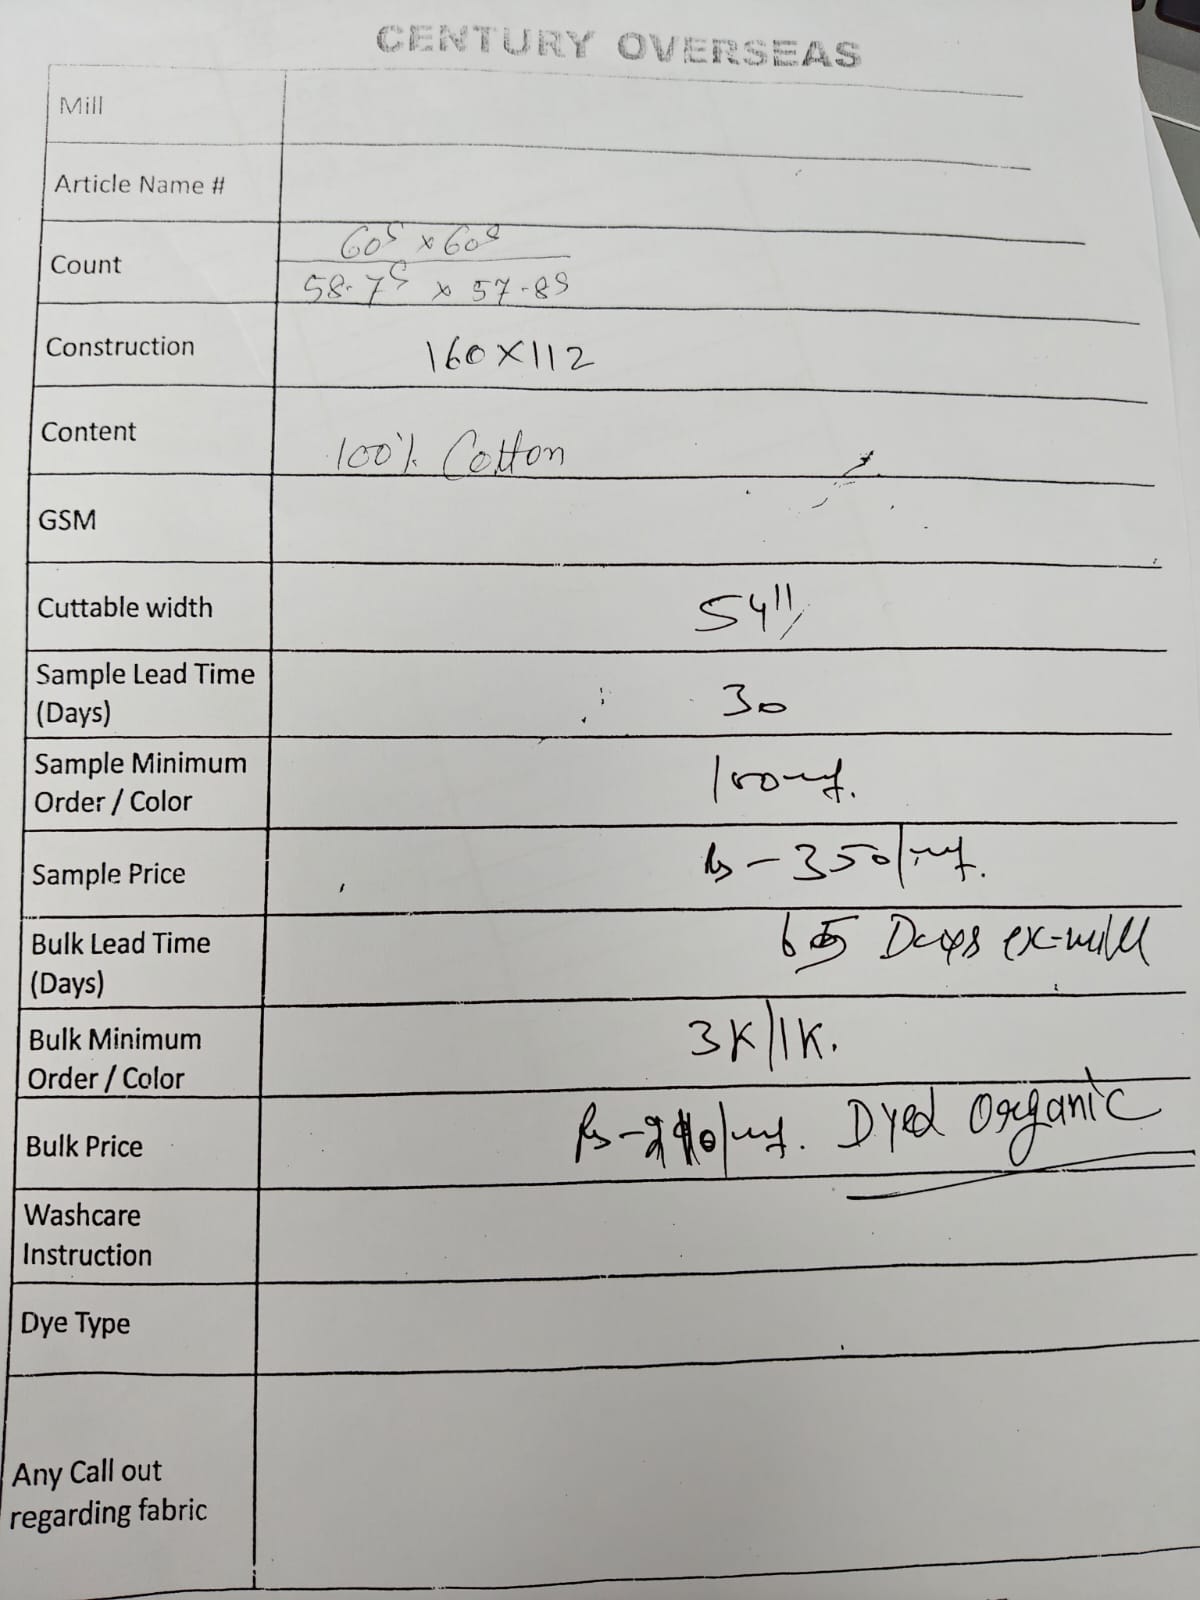 CENTURY OVERSEAS
Mill
Article Name #
Count 60s x 60s
58.7s x 57.8s
Construction 160X112
Content 100% Cotton
GSM
Cuttable width 54"
Sample Lead Time
(Days) 30
Sample Minimum
Order / Color 100
Sample Price Rs - 350/
Bulk Lead Time
(Days) 65 Days ex-mill
Bulk Minimum
Order / Color 3K/1K.
Bulk Price Rs - Dyed Organic
Washcare
Instruction
Dye Type
Any Call out
regarding fabric